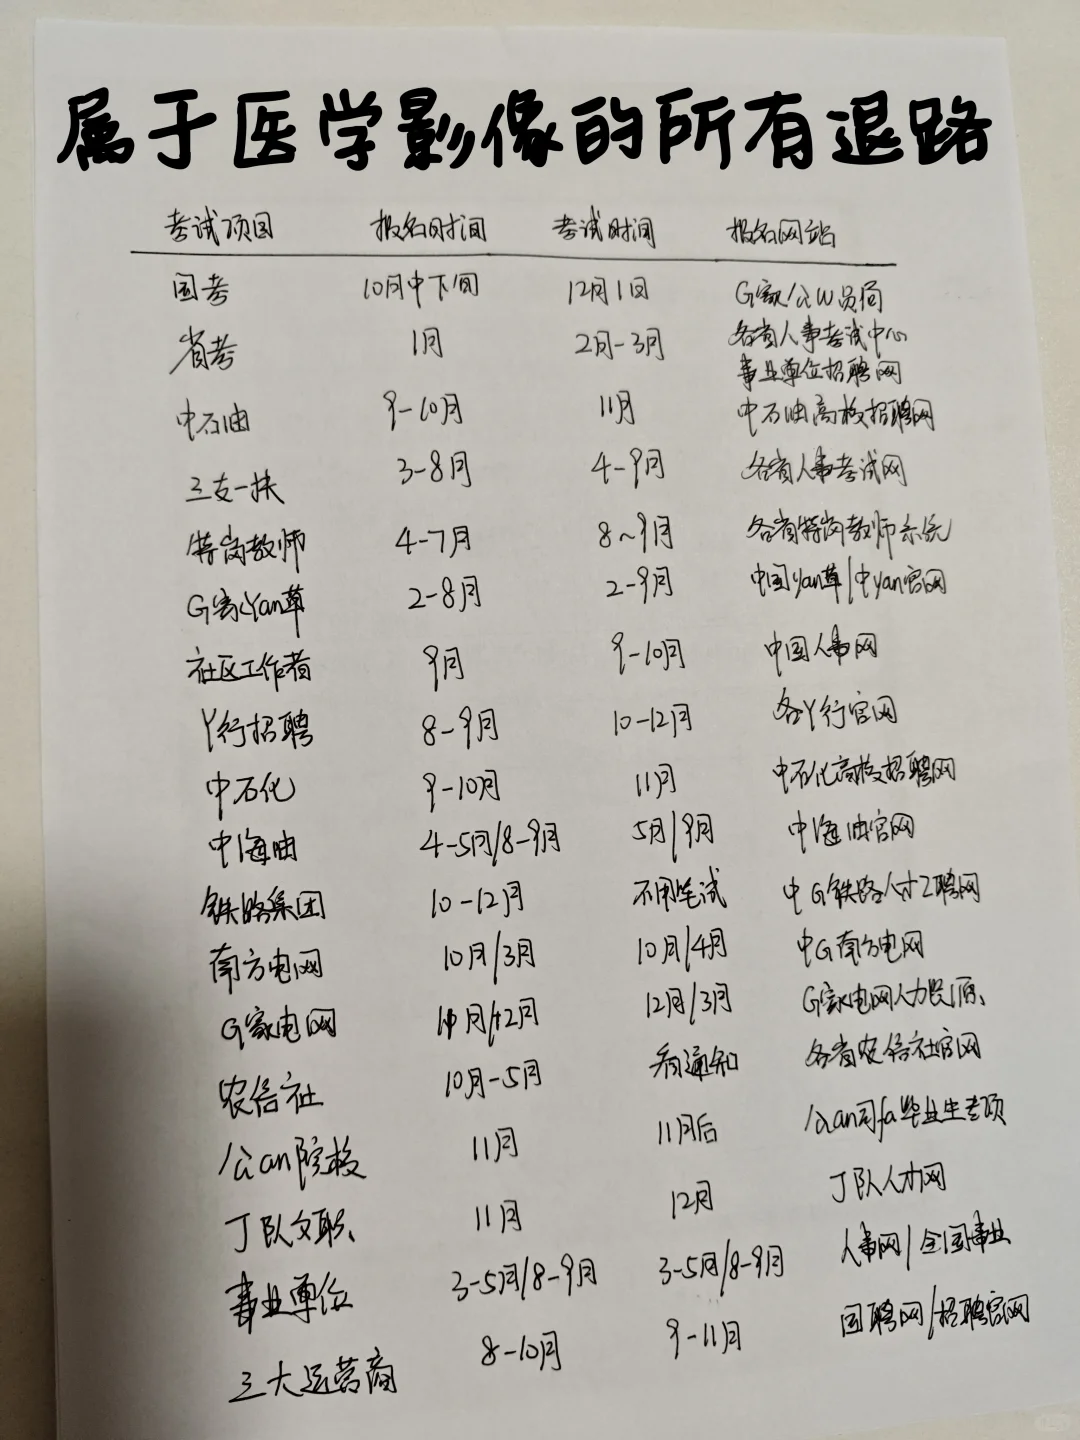 属于医学影像的所有退路
考试项目 报名时间 考试时间 报名网站
国考 10月中下旬 12月1日 G家公W员局
省考 1月 2月-3月 各省人事考试中心
事业单位招聘网
中石油 9-10月 11月 中石油高校招聘网
三支一扶 3-8月 4-9月 各省人事考试网
特岗教师 4-7月 8~9月 各省特岗教师系统
G家Yan草 2-8月 2-9月 中国Yan草/中Yan官网
社区工作者 9月 9-10月 中国人事网
Y行招聘 8-9月 10-12月 各Y行官网
中石化 9-10月 11月 中石化高校招聘网
中海油 4-5月/8-9月 5月/9月 中海油官网
铁路集团 10-12月 不用笔试 中G铁路人才Z聘网
南方电网 10月/3月 10月/4月 中G南方电网
G家电网 月/2月 12月/3月 G家电网人力资源
农信社 10月-5月 看通知 各省农信社官网
公an院校 11月 11月后 公an司fa毕业生专项
J队文职 11月 12月 J队人才网
事业单位 3-5月/8-9月 3-5月/8-9月 人事网/全国事业
三大运营商 8-10月 9-11月 国聘网/招聘官网